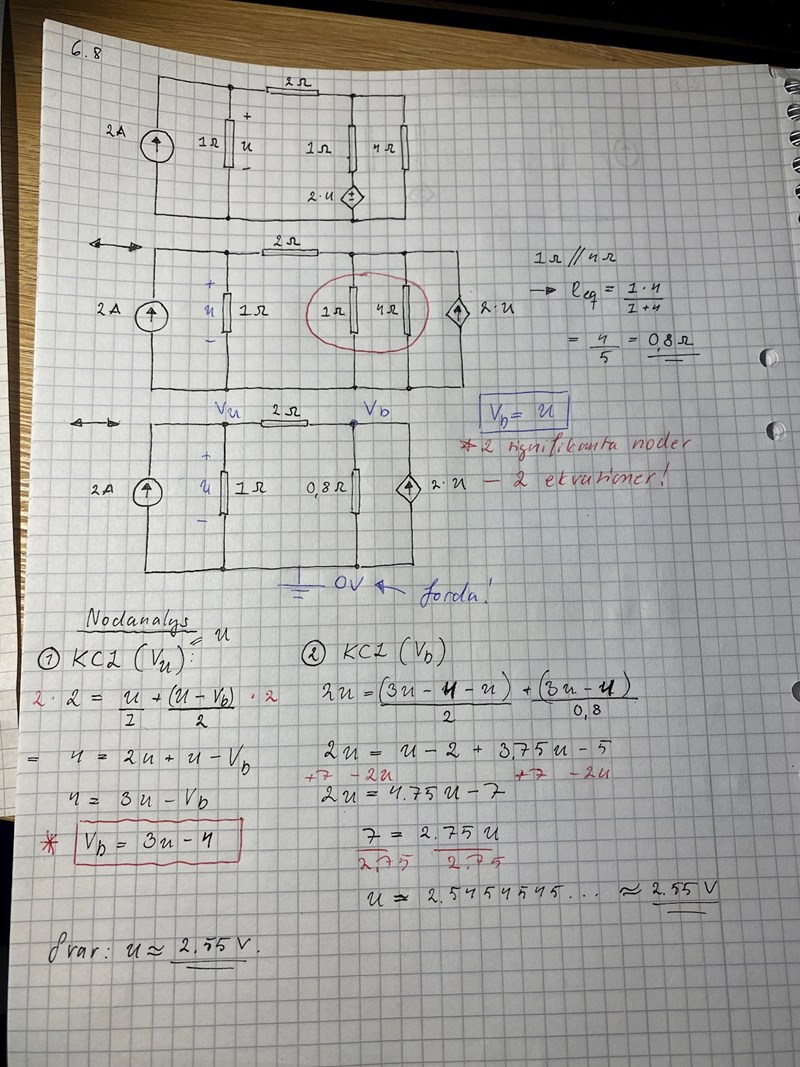 6.8
2Ω
2A
1Ω
+
u
-
1Ω
4Ω
2·u
±
2Ω
2A
+
u
-
1Ω
1Ω
4Ω
2·u
1Ω//4Ω
→ Req = 1·4/1+4
= 4/5 = 0,8Ω
Vu
2Ω
Vb
2A
+
u
-
1Ω
0,8Ω
2·u
Vb = u
* 2 signifikanta noder
- 2 ekvationer!
0V ← Jorda!
Nodanalys
① KCL (Vu): = u
2 · 2 = u/1 + (u - Vb)/2 · 2
= 4 = 2u + u - Vb
4 = 3u - Vb
* Vb = 3u - 4
② KCL (Vb)
2u = (3u - 4 - u)/2 + (3u - 4)/0,8
2u = u - 2 + 3,75u - 5
+7 -2u +7 -2u
2u = 4.75u - 7
7/2,75 = 2.75u/2,75
u = 2.5454545... ≈ 2.55 V
Svar: u ≈ 2.55 V.